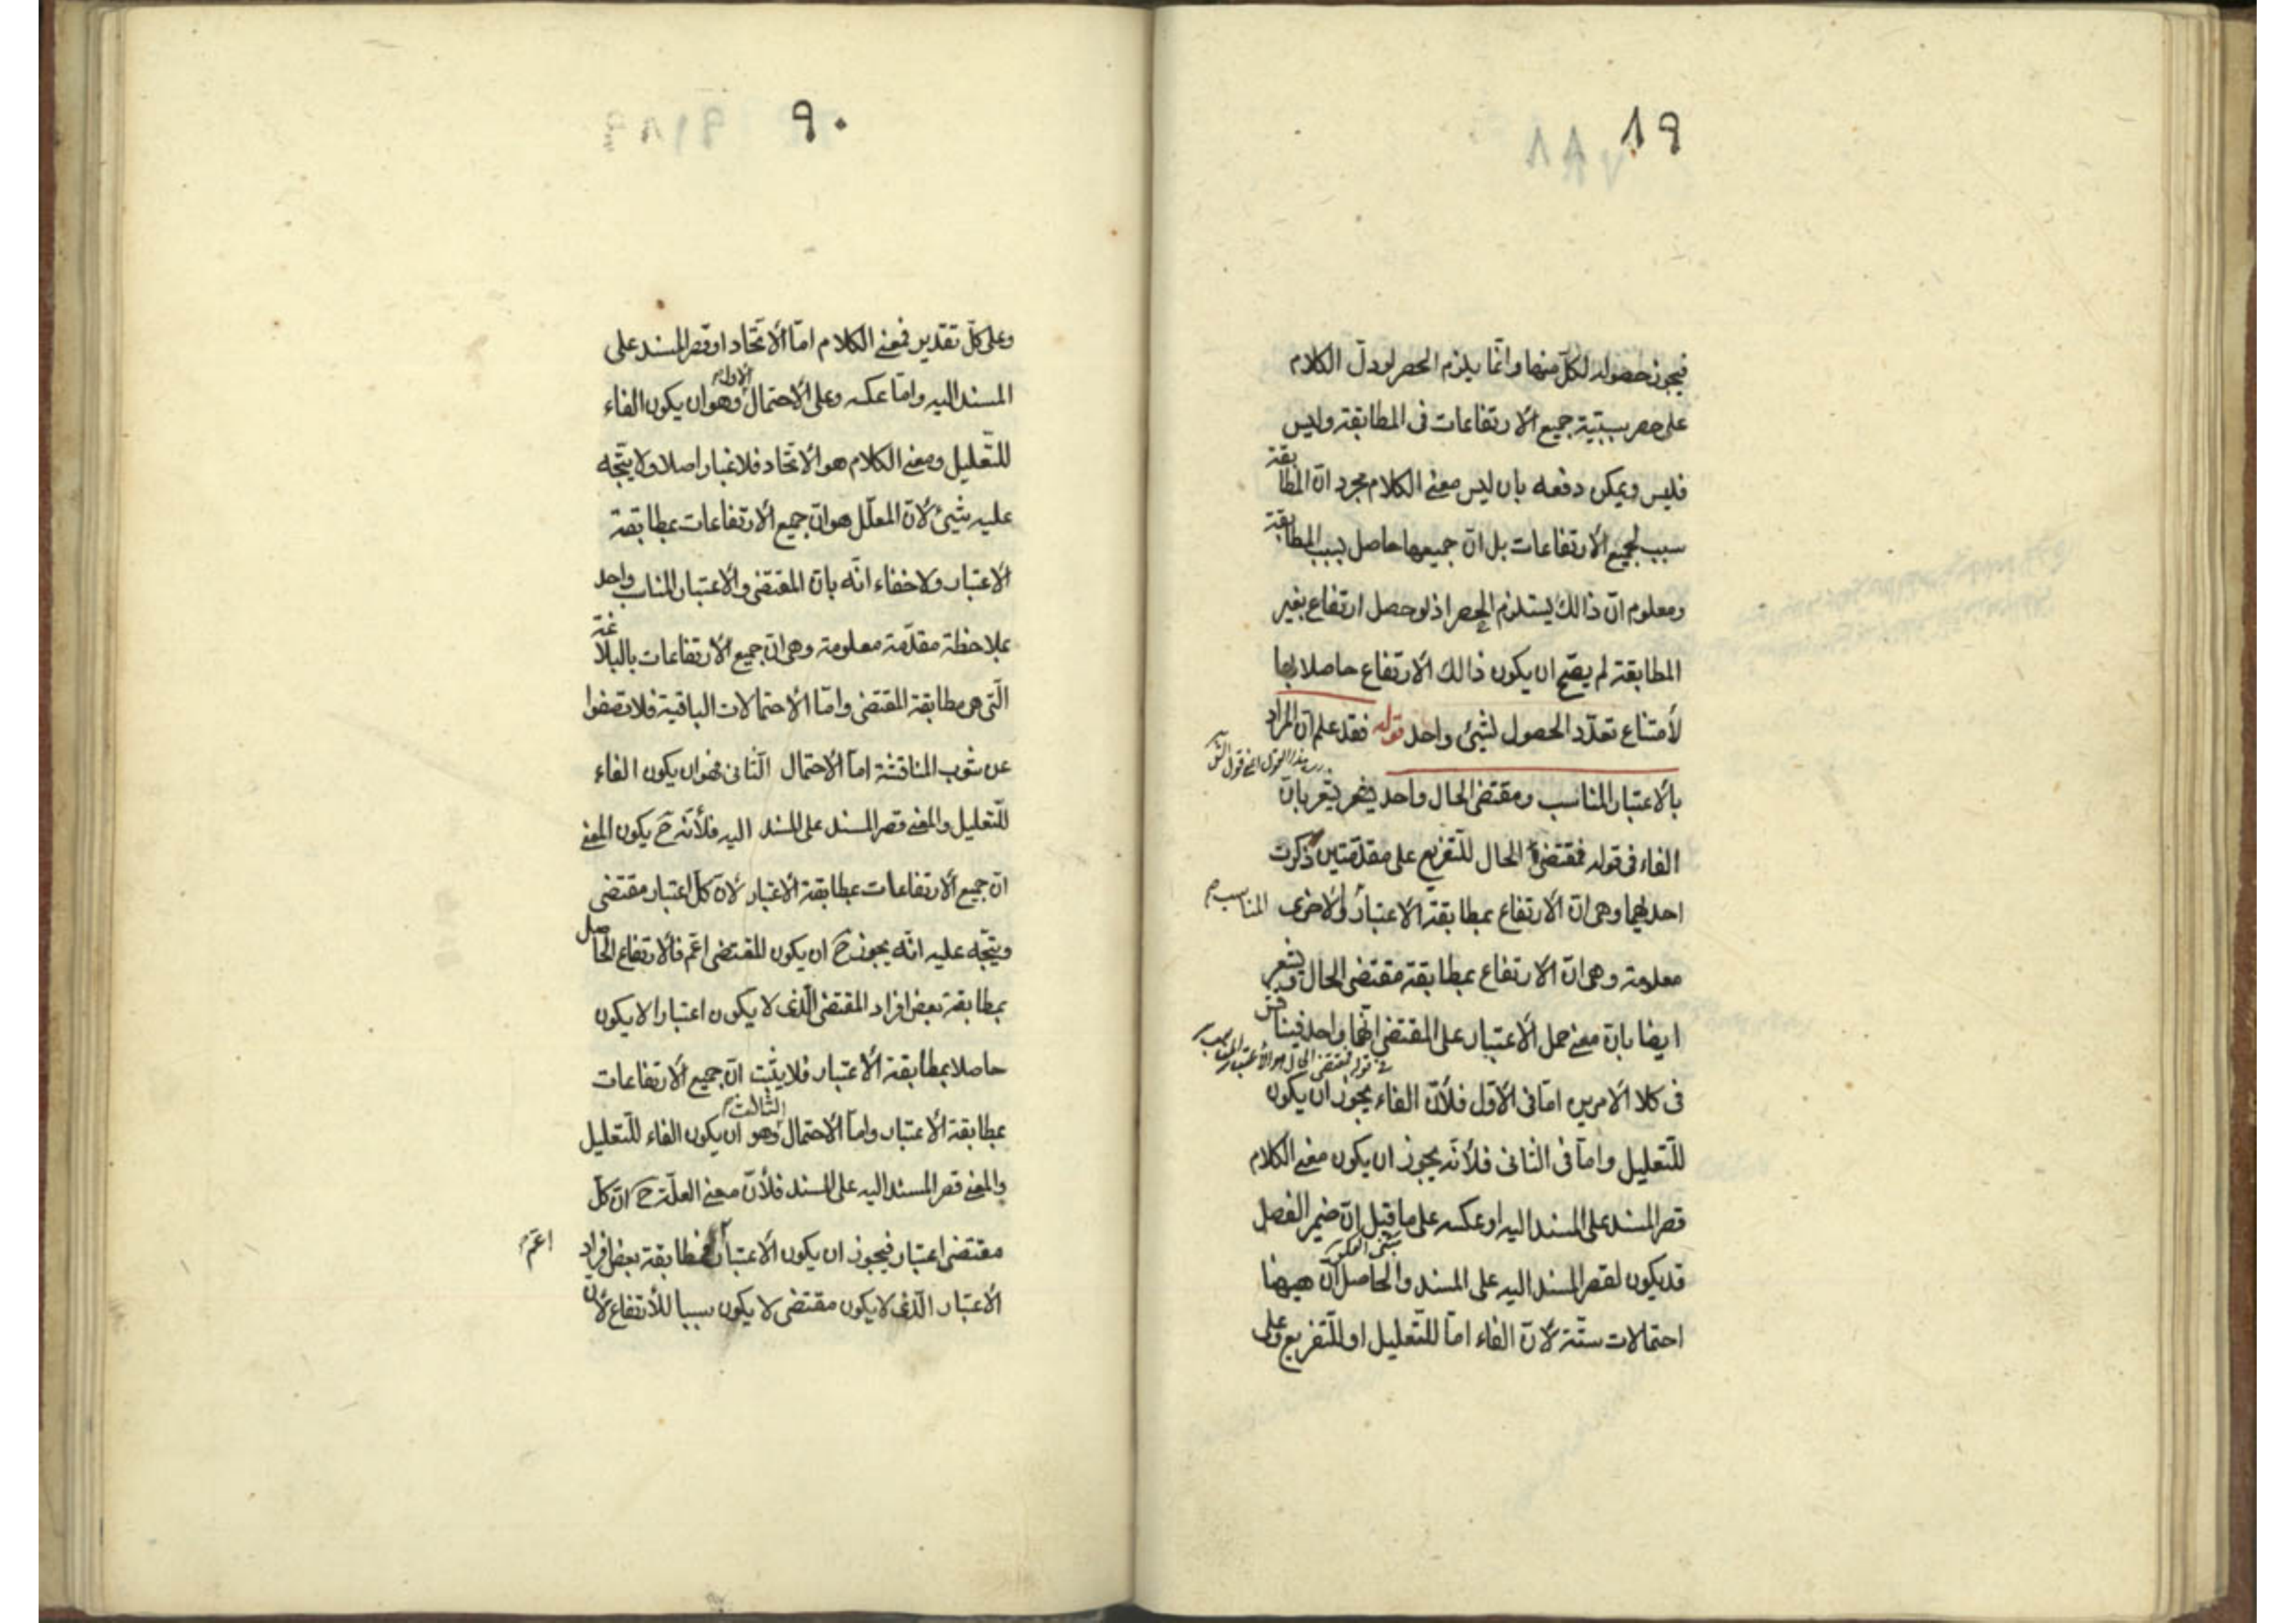 ٨٩
فيجوز حصوله لكل منها وانّما يلزم الحصر لو دلّ الكلام
على حصر سببيّة جميع الارتفاعات فى المطابقة وليس
فليس ويمكن دفعه بان ليس معنى الكلام مجرد انّ المطابقة
سبب لجميع الارتفاعات بل انّ جميعها حاصل بسبب المطابقة
ومعلوم انّ ذالك يستلزم الحصر اذ لو حصل ارتفاع بغير
المطابقة لم يصحّ ان يكون ذالك الارتفاع حاصلا بها
لأمتناع تعدّد الحصول لشيئ واحد قوله فقد علم انّ المراد
بالاعتبار المناسب ومقتضى الحال واحد يشعر بانّ
الفاء فى قوله فمقتضى الحال للتّفريع على مقدّمتين ذكرت
احديهما وهى انّ الارتفاع بمطابقة الاعتبار المناسب والاخرى
معلومة وهى انّ الارتفاع بمطابقة مقتضى الحال ويشعر
ايضا بانّ معنى حمل الاعتبار على المقتضى انّهما واحد فيناقش
فى قوله فمقتضى الحال هو الاعتبار المناسب
فى كلا الامرين امّا فى الاوّل فلأنّ الفاء يجوز ان يكون
للتّعليل وامّا فى الثانى فلأنّه يجوز ان يكون معنى الكلام
قصر المسند على المسند اليه او عكسه على ما قيل انّ ضمير الفصل
قد يكون لقصر المسند اليه على المسند والحاصل انّ ههنا
احتمالات ستّة لانّ الفاء امّا للتّعليل او للتّفريع وعلى
٩٠
وعلى كلّ تقدير فمعنى الكلام امّا الاتّحاد او قصر المسند على
المسند اليه وامّا عكسه وعلى الاحتمال الاول وهو ان يكون الفاء
للتّعليل ومعنى الكلام هو الاتّحاد فلا غبار اصلا ولا يتّجه
عليه شيئ لانّ المعلّل هو انّ جميع الارتفاعات بمطابقة
الاعتبار ولا خفاء انّه بانّ المقتضى والاعتبار المناسب واحد
بملاحظة مقدّمة معلومة وهى انّ جميع الارتفاعات بالبلاغة
الّتى هى مطابقة المقتضى وامّا الاحتمالات الباقية فلا تصفوا
عن شوب المناقشة امّا الاحتمال الثّانى فهو ان يكون الفاء
للتّعليل والمعنى قصر المسند على المسند اليه فلأنّه ح يكون المعنى
انّ جميع الارتفاعات بمطابقة الاعتبار لانّ كلّ اعتبار مقتضى
ويتّجه عليه انّه يجوز ح ان يكون المقتضى اعمّ فالارتفاع الحاصل
بمطابقة بعض افراد المقتضى الّذى لا يكون اعتبارا لا يكون
حاصلا بمطابقة الاعتبار فلا يثبت انّ جميع الارتفاعات
بمطابقة الاعتبار وامّا الاحتمال الثالث وهو ان يكون الفاء للتّعليل
والمعنى قصر المسند اليه على المسند فلأنّ معنى العلّة ح انّ كلّ
مقتضى اعتبار فيجوز ان يكون الاعتبار اعمّ فمطابقة بعض افراد
الاعتبار الّذى لا يكون مقتضى لا يكون سببا للأرتفاع لأنّ